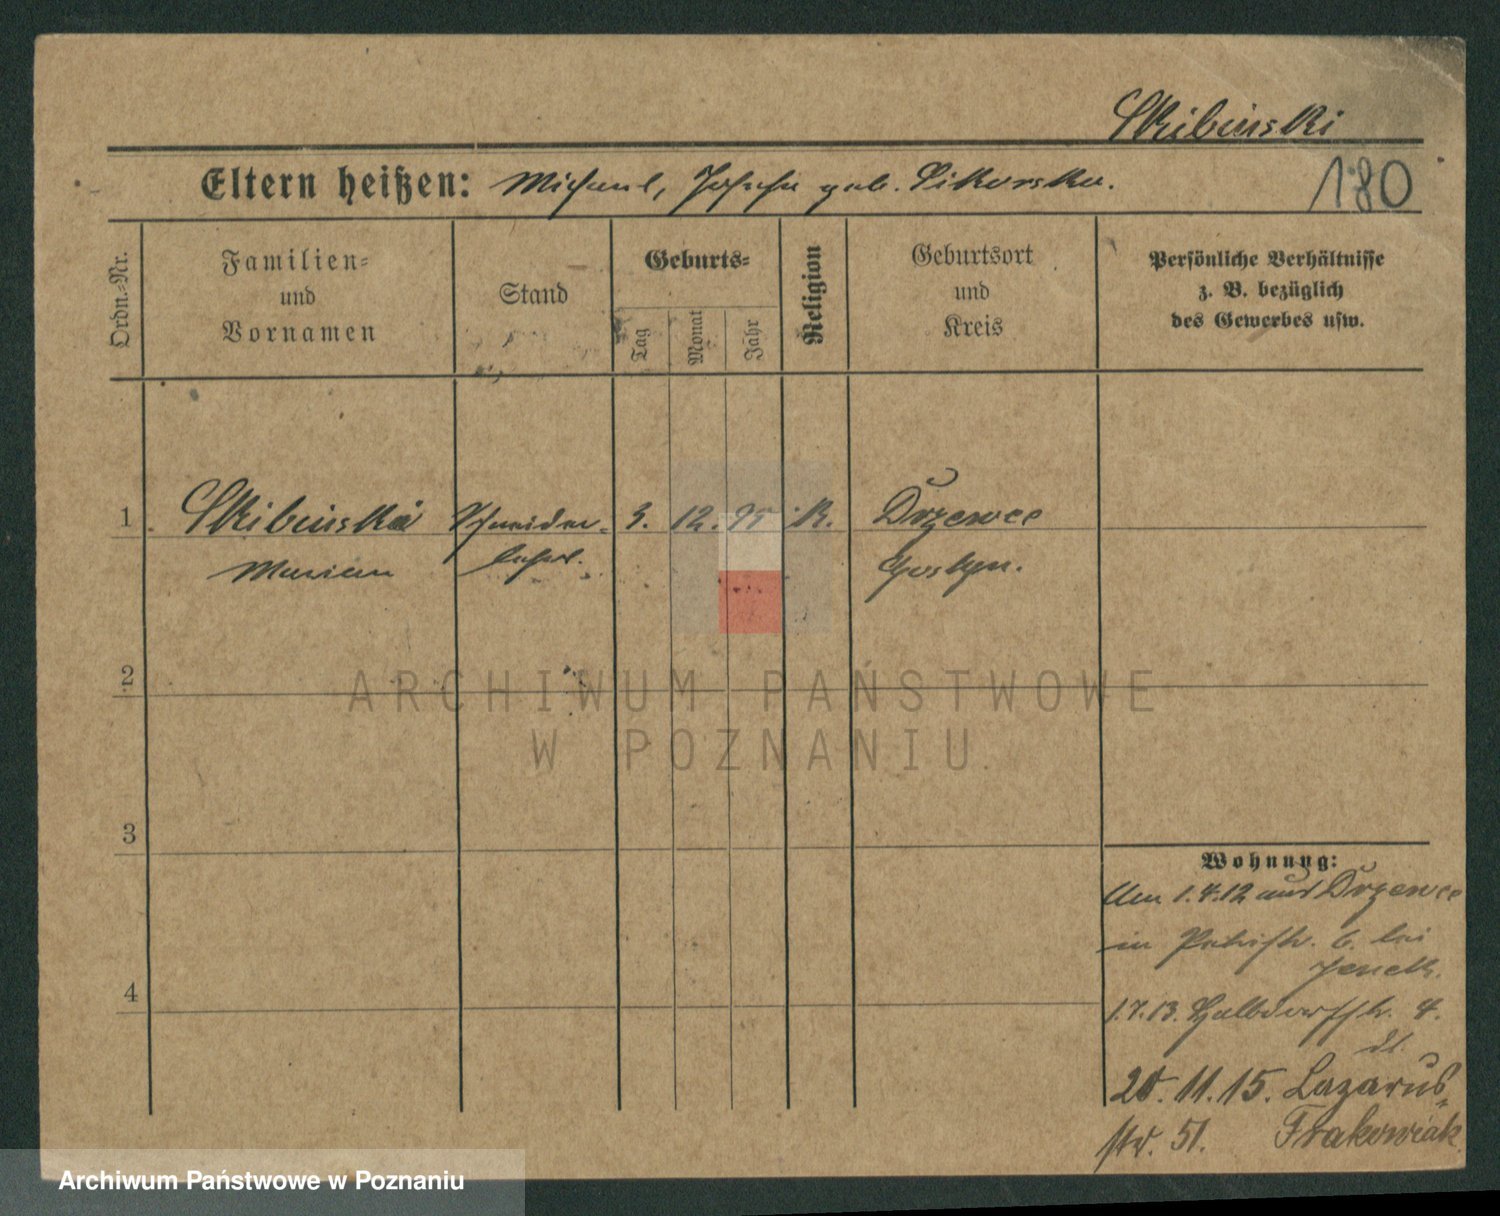 Skibinski
Eltern heißen: Michael, Josefa geb. Sikorska.
180
Ordn.-Nr.
Familien-
und
Vornamen
Stand
Geburts-
Tag
Monat
Jahr
Religion
Geburtsort
und
Kreis
Persönliche Verhältnisse
z. B. bezüglich
des Gewerbes usw.
1. Skibinski Schneider- 3. 12. 95 K. Drzewce
Marian lehrl. Gostyn.
2
3
4
Wohnung:
Um 1.4.12 aus Drzewce
in Petristr. 6. bei
1.7.13. Halbdorfstr. 4.
20.11.15. Lazarus-
str. 51. Frakowiak
ARCHIWUM PAŃSTWOWE
W POZNANIU
Archiwum Państwowe w Poznaniu